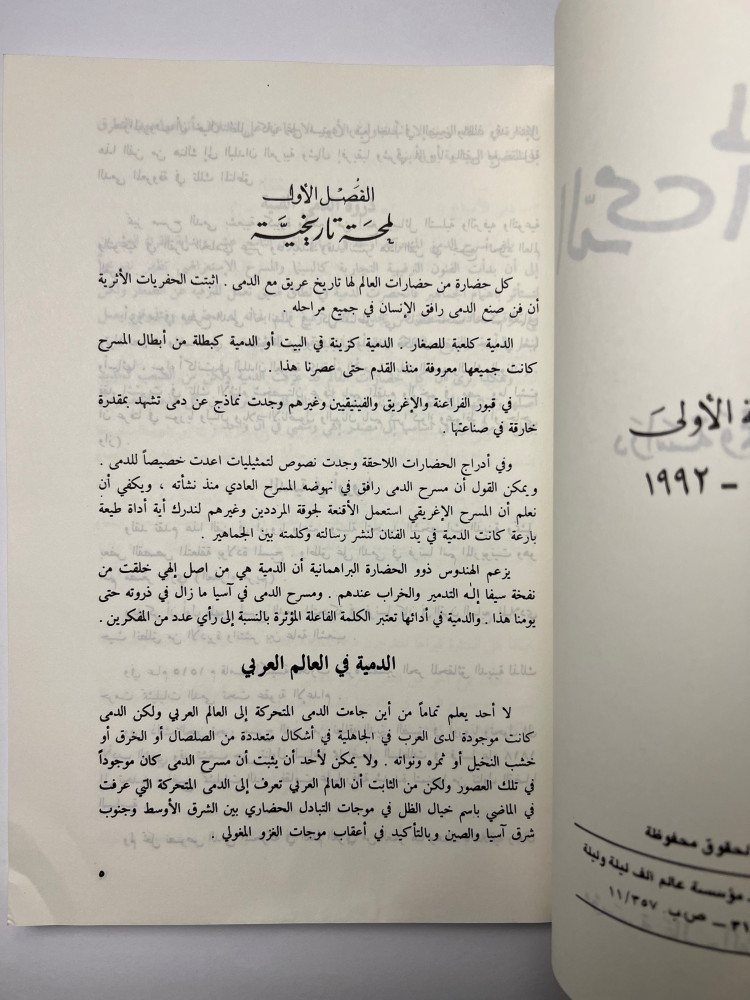 الفصل الأول
لمحة تاريخية
كل حضارة من حضارات العالم لها تاريخ عريق مع الدمى . اثبتت الحفريات الأثرية
أن فن صنع الدمى رافق الإنسان في جميع مراحله .
الدمية كلعبة للصغار . الدمية كزينة في البيت أو الدمية كبطلة من أبطال المسرح
كانت جميعها معروفة منذ القدم حتى عصرنا هذا .
في قبور الفراعنة والإغريق والفينيقيين وغيرهم وجدت نماذج عن دمى تشهد بمقدرة
خارقة في صناعتها .
وفي أدراج الحضارات اللاحقة وجدت نصوص لتمثيليات اعدت خصيصاً للدمى .
ويمكن القول أن مسرح الدمى رافق في نهوضه المسرح العادي منذ نشأته ، ويكفي أن
نعلم أن المسرح الإغريقي استعمل الأقنعة لجوقة المرددين وغيرهم لندرك أية أداة طيعة
بارعة كانت الدمية في يد الفنان لنشر رسالته وكلمته بين الجماهير .
يزعم الهندوس ذوو الحضارة البراهمانية أن الدمية هي من اصل إلهي خلقت من
نفخة سيفا إلـٰه التدمير والخراب عندهم . ومسرح الدمى في آسيا ما زال في ذروته حتى
يومنا هذا . والدمية في أدائها تعتبر الكلمة الفاعلة المؤثرة بالنسبة إلى رأي عدد من المفكرين .
الدمية في العالم العربي
لا أحد يعلم تماماً من أين جاءت الدمى المتحركة إلى العالم العربي ولكن الدمى
كانت موجودة لدى العرب في الجاهلية في أشكال متعددة من الصلصال أو الخرق أو
خشب النخيل أو ثمره ونواته . ولا يمكن لأحد أن يثبت أن مسرح الدمى كان موجوداً
في تلك العصور ولكن من الثابت أن العالم العربي تعرف إلى الدمى المتحركة التي عرفت
في الماضي باسم خيال الظل في موجات التبادل الحضاري بين الشرق الأوسط وجنوب
شرق آسيا والصين وبالتأكيد في أعقاب موجات الغزو المغولي .
٥
الأولى
- ١٩٩٢
لحقوق محفوظة
مؤسسة عالم الف ليلة وليلة
٣١ – ص ب ١١/٣٥٧